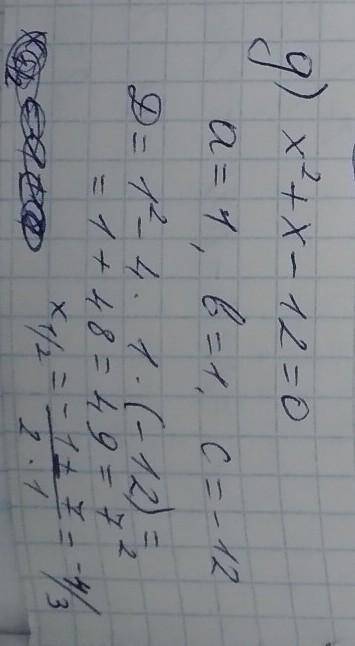 g) x² + x - 12 = 0
a = 1, b = 1, c = -12
D = 1² - 4 · 1 · (-12) =
= 1 + 48 = 49 = 7²
x₁/₂ = (-1 ± 7)/(2 · 1) = -4/3